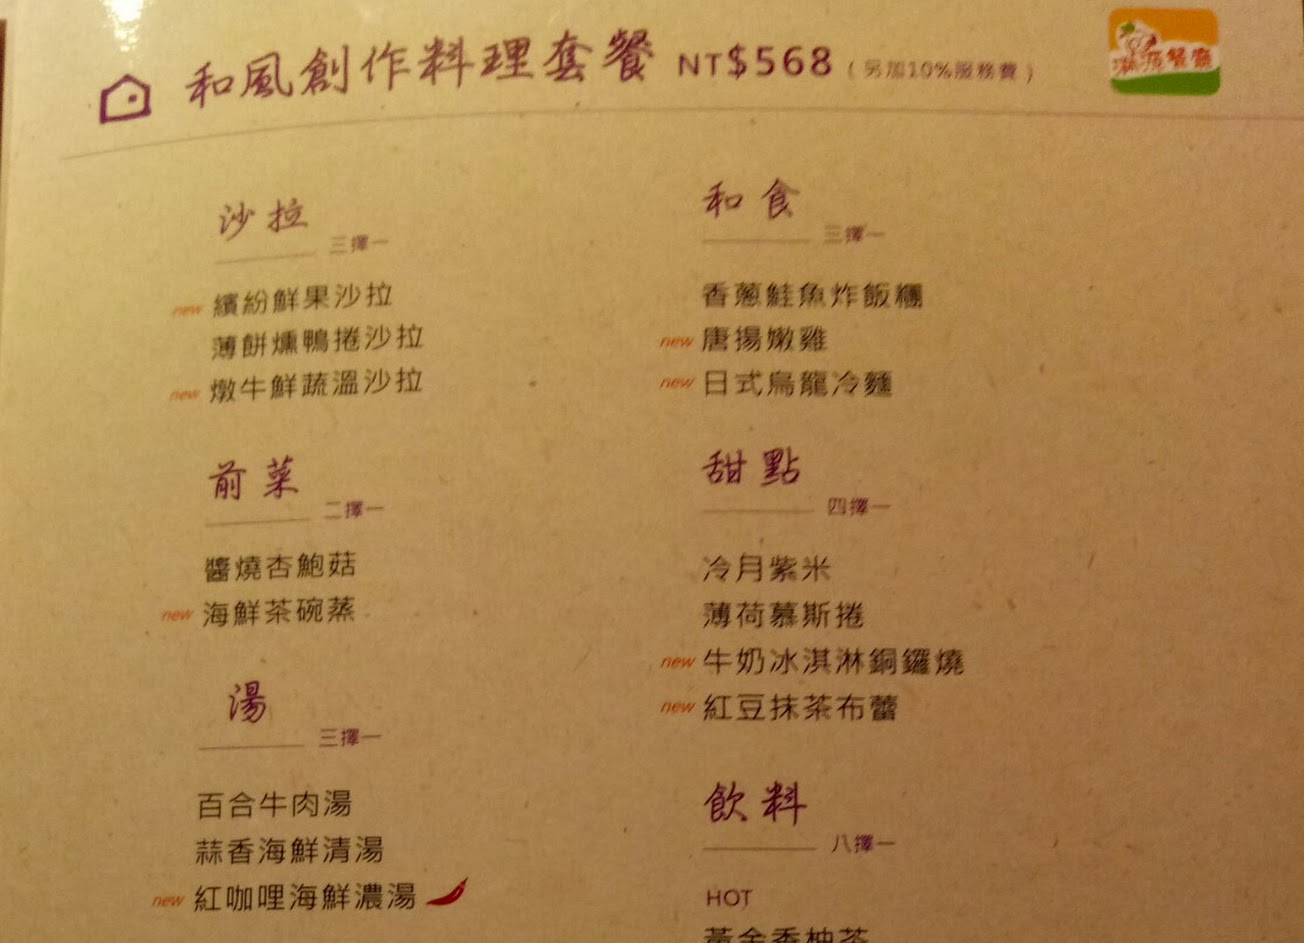 和風創作料理套餐 NT$568（另加10%服務費）
沙拉
三擇一
new 繽紛鮮果沙拉
薄餅燻鴨捲沙拉
new 燉牛鮮蔬溫沙拉
前菜
二擇一
醬燒杏鮑菇
new 海鮮茶碗蒸
湯
三擇一
百合牛肉湯
蒜香海鮮清湯
new 紅咖哩海鮮濃湯
和食
三擇一
香蔥鮭魚炸飯糰
new 唐揚嫩雞
new 日式烏龍冷麵
甜點
四擇一
冷月紫米
薄荷慕斯捲
new 牛奶冰淇淋銅鑼燒
new 紅豆抹茶布蕾
飲料
八擇一
HOT
黃金香柚茶